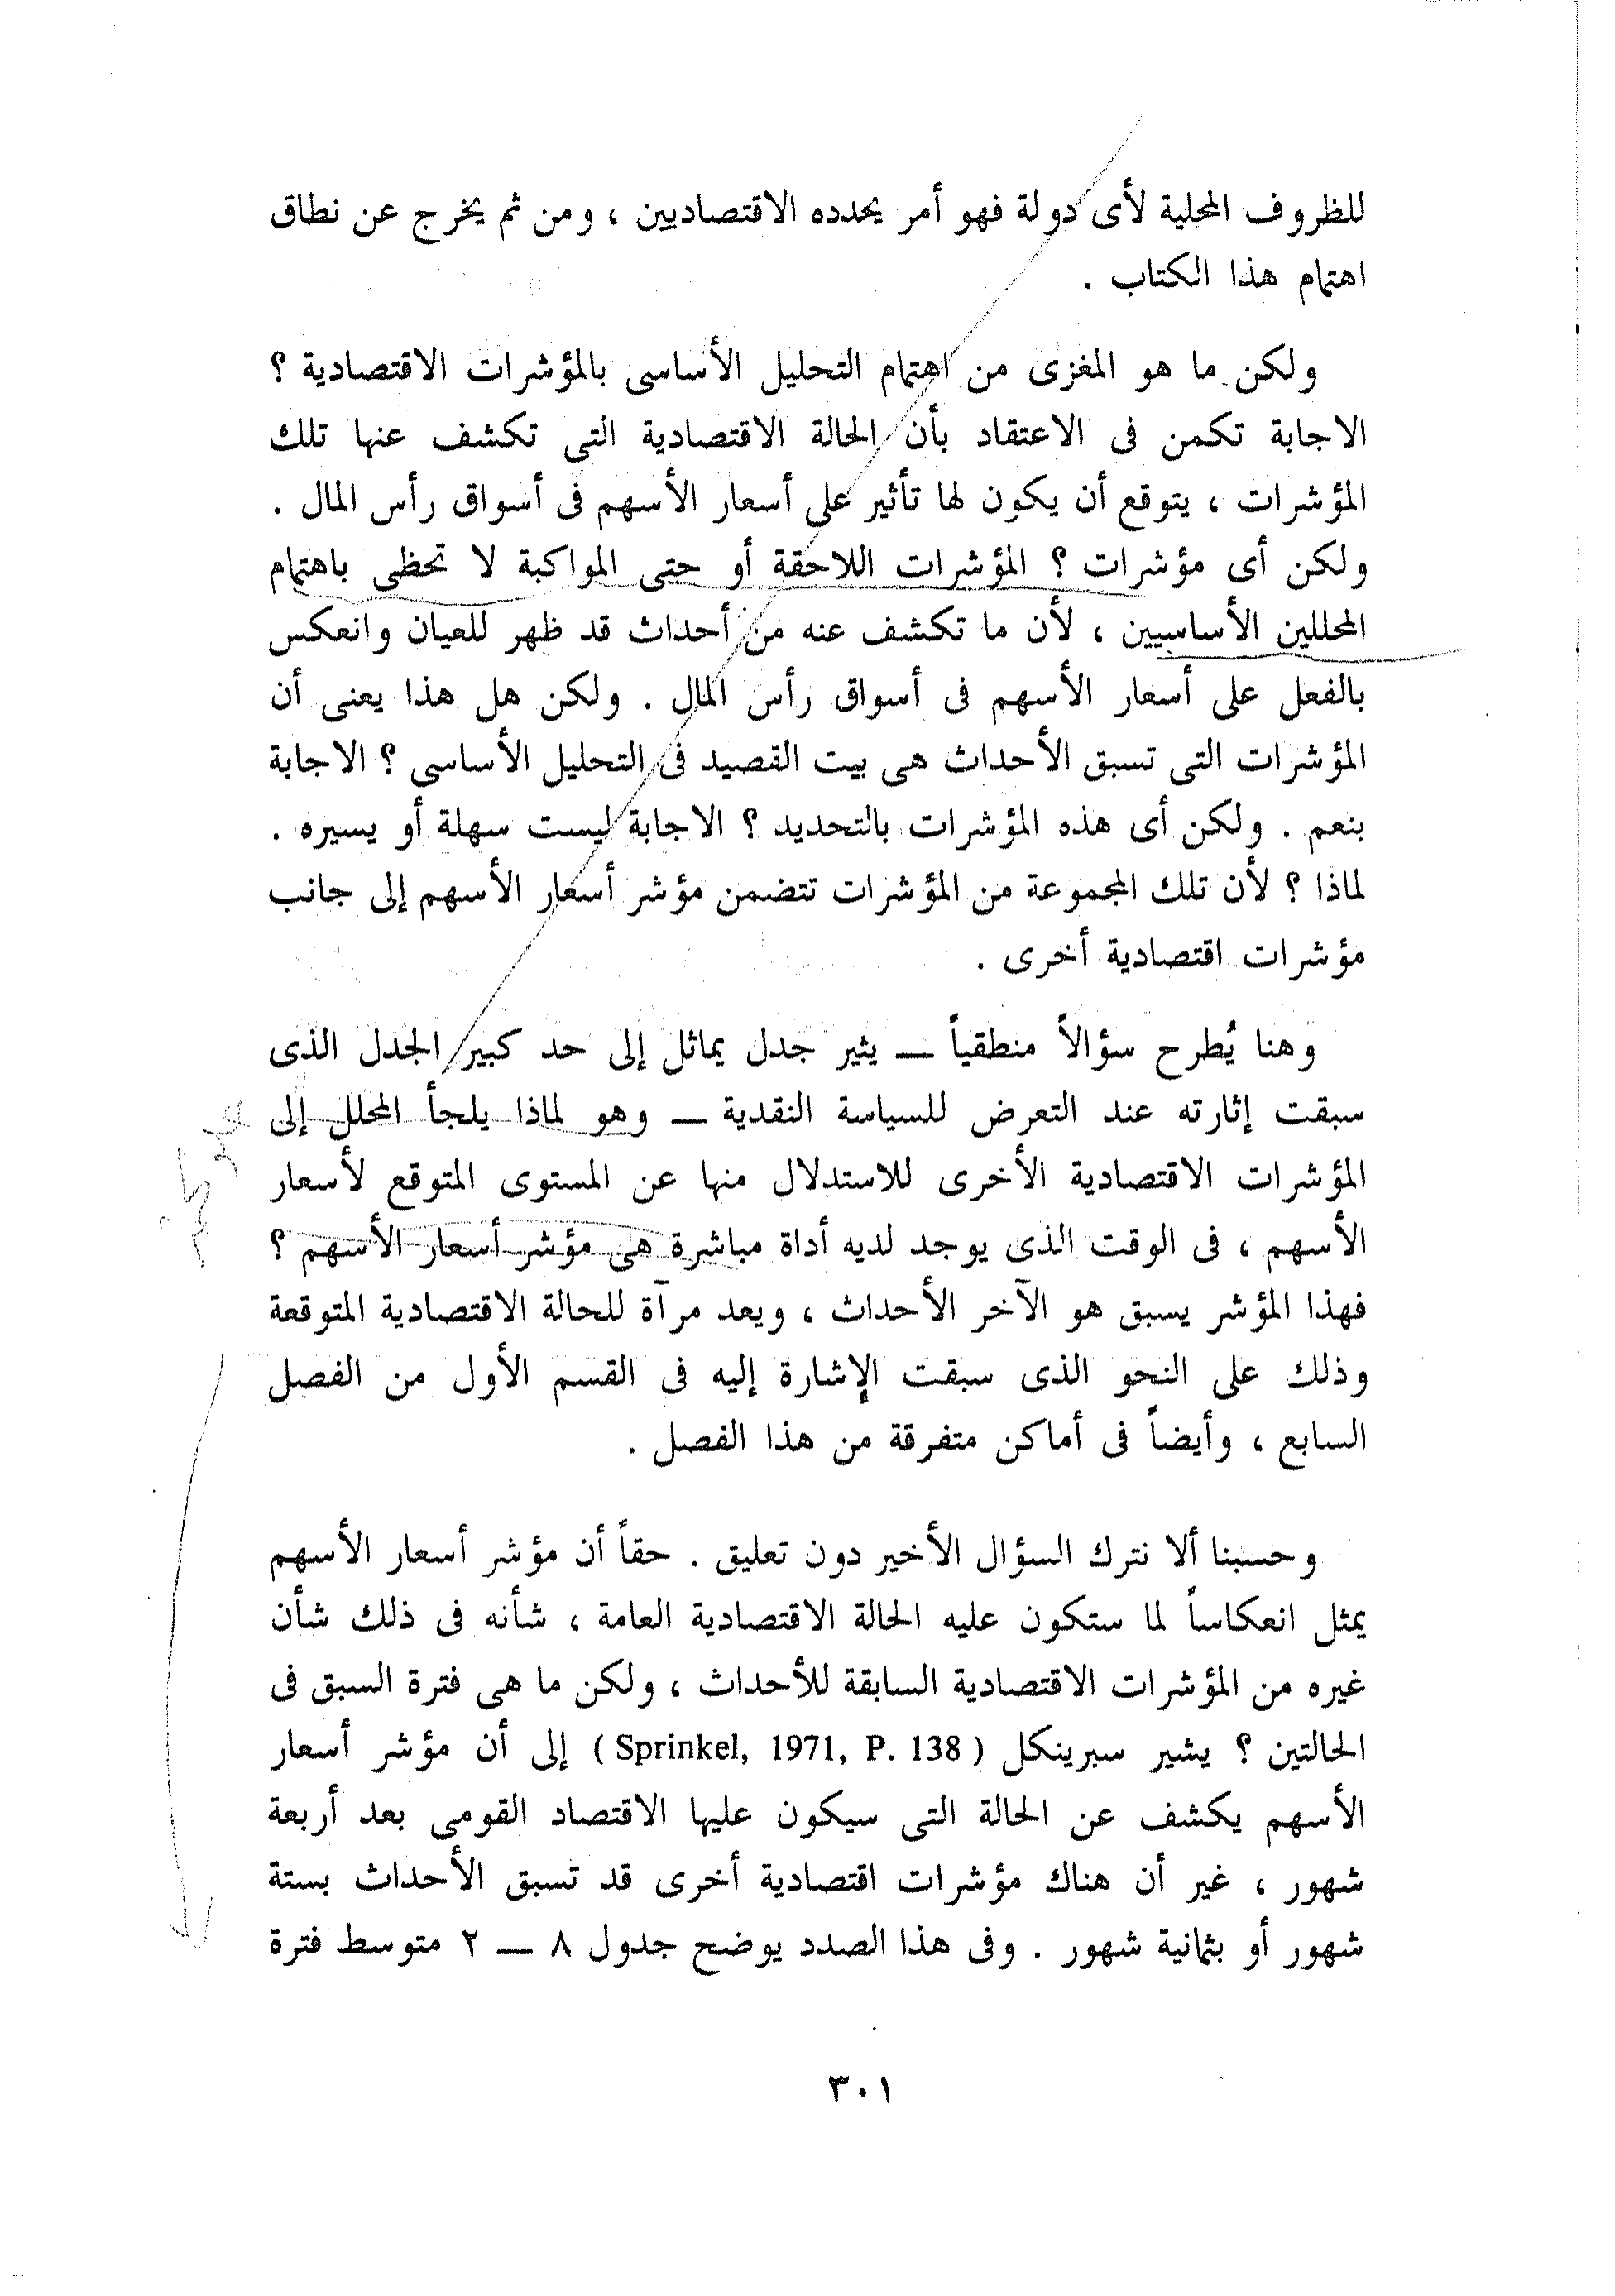 للظروف المحلية لأى دولة فهو أمر يحدده الاقتصاديين ، ومن ثم يخرج عن نطاق
اهتمام هذا الكتاب .
ولكن ما هو المغزى من اهتمام التحليل الأساسى بالمؤشرات الاقتصادية ؟
الاجابة تكمن فى الاعتقاد بأن الحالة الاقتصادية التى تكشف عنها تلك
المؤشرات ، يتوقع أن يكون لها تأثير على أسعار الأسهم فى أسواق رأس المال .
ولكن أى مؤشرات ؟ المؤشرات اللاحقة أو حتى المواكبة لا تحظى باهتمام
المحللين الأساسيين ، لأن ما تكشف عنه من أحداث قد ظهر للعيان وانعكس
بالفعل على أسعار الأسهم فى أسواق رأس المال . ولكن هل هذا يعنى أن
المؤشرات التى تسبق الأحداث هى بيت القصيد فى التحليل الأساسى ؟ الاجابة
بنعم . ولكن أى هذه المؤشرات بالتحديد ؟ الاجابة ليست سهلة أو يسيره .
لماذا ؟ لأن تلك المجموعة من المؤشرات تتضمن مؤشر أسعار الأسهم إلى جانب
مؤشرات اقتصادية أخرى .
وهنا يُطرح سؤالاً منطقياً — يثير جدل يماثل إلى حد كبير الجدل الذى
سبقت إثارته عند التعرض للسياسة النقدية — وهو لماذا يلجأ المحلل إلى
المؤشرات الاقتصادية الأخرى للاستدلال منها عن المستوى المتوقع لأسعار
الأسهم ، فى الوقت الذى يوجد لديه أداة مباشرة هى مؤشر أسعار الأسهم ؟
فهذا المؤشر يسبق هو الآخر الأحداث ، ويعد مرآة للحالة الاقتصادية المتوقعة
وذلك على النحو الذى سبقت الإشارة إليه فى القسم الأول من الفصل
السابع ، وأيضاً فى أماكن متفرقة من هذا الفصل .
وحسبنا ألا نترك السؤال الأخير دون تعليق . حقاً أن مؤشر أسعار الأسهم
يمثل انعكاساً لما ستكون عليه الحالة الاقتصادية العامة ، شأنه فى ذلك شأن
غيره من المؤشرات الاقتصادية السابقة للأحداث ، ولكن ما هى فترة السبق فى
الحالتين ؟ يشير سبرينكل ( Sprinkel, 1971, P. 138 ) إلى أن مؤشر أسعار
الأسهم يكشف عن الحالة التى سيكون عليها الاقتصاد القومى بعد أربعة
شهور ، غير أن هناك مؤشرات اقتصادية أخرى قد تسبق الأحداث بستة
شهور أو بثمانية شهور . وفى هذا الصدد يوضح جدول ٨ — ٢ متوسط فترة
٣٠١